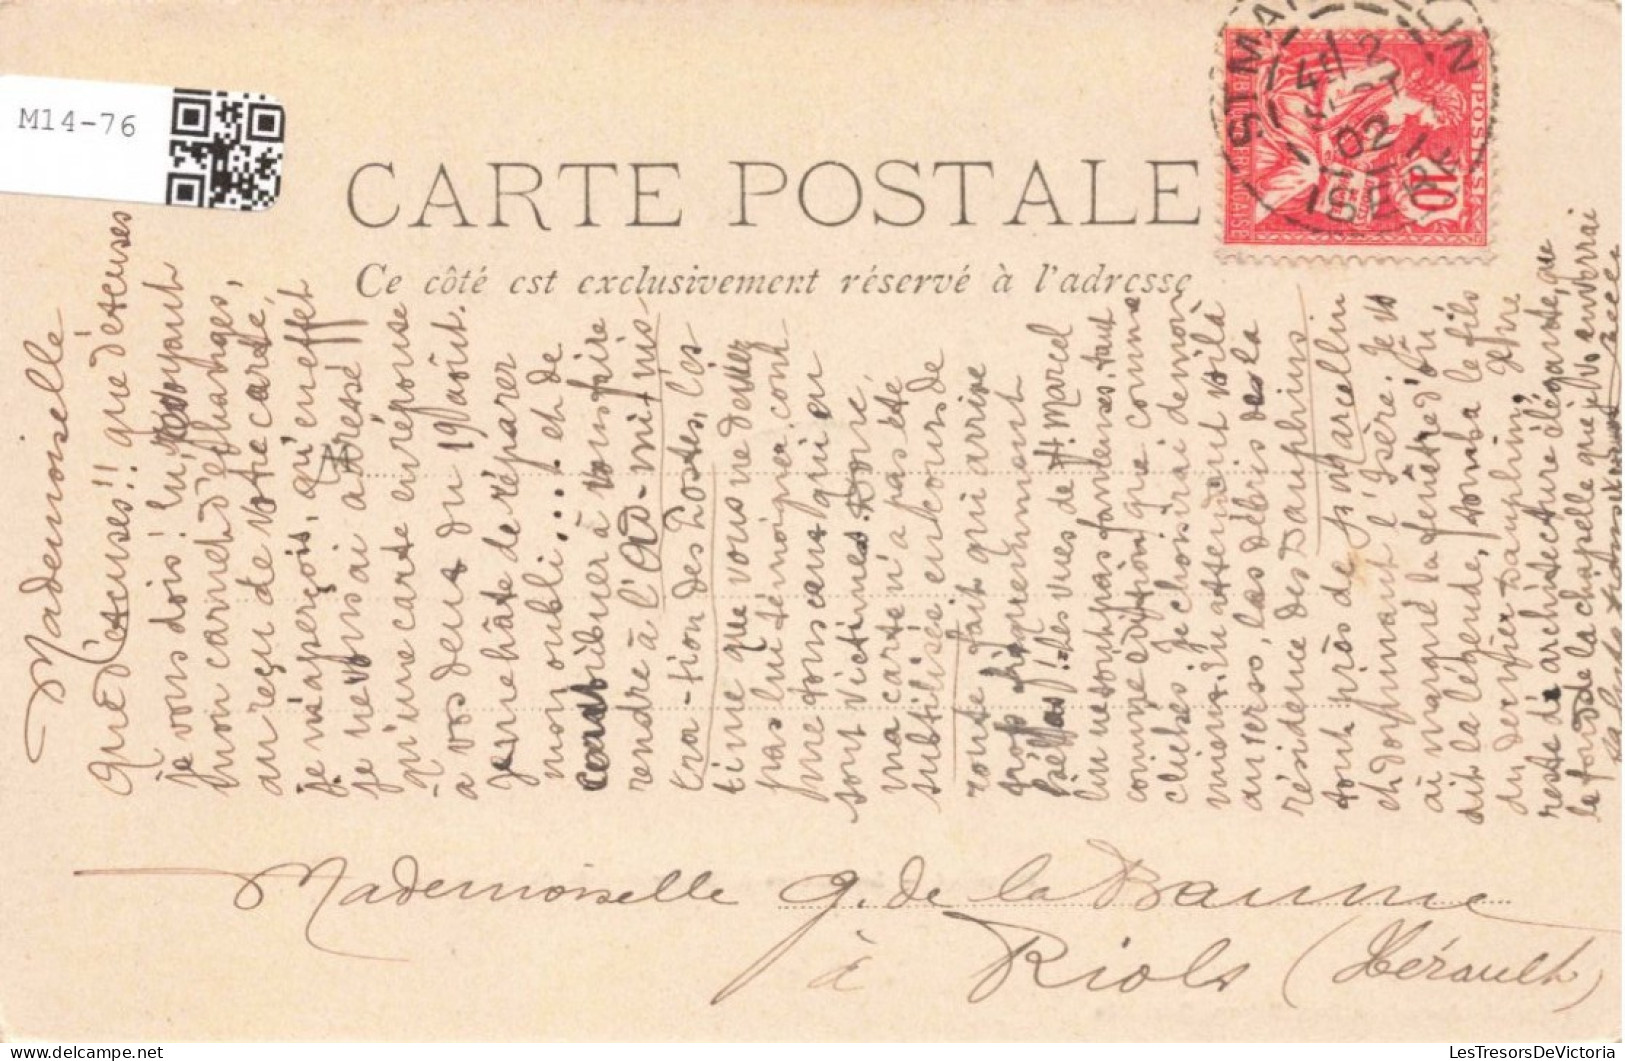 M14-76
CARTE POSTALE
Ce côté est exclusivement réservé à l'adresse
ST MARCELLIN
4E / 2
02
ISÈRE
POSTES
10
Mademoiselle
Que d'excuses!! que d'excuses
je vous dois! En, voyant
mon carnet d'échanges,
au reçu de votre carte,
je m'aperçois, qu'en effet
je ne vous ai adressé
qu'une carte en réponse
à vos deux du 19 août.
Je me hâte de réparer
mon oubli... et de
contribuer à vous faire
rendre à l'Ad-mi-nis-
tra-tion des Postes, l'es
time que vous ne devez
pas lui témoigner. cont
me tous ceux qui en
sont victimes. Donc,
ma carte n'a pas été
subtilisée en cours de
route fait qui arrive
trop fréquemment
hélas! Les vues de St Marcel
lin ne sont pas fameuses, tant
comme édition que comme
clichés. Je choisirai de mon
mieux. En attendant voilà
au verso, les débris de la
résidence des Dauphins
tout près de St Marcellin
et dominant l'Isère. Je vs
ai marqué la fenêtre d'où
dit la légende, tomba le fils
du dernier Dauphin,
reste d'architecture élégante, que
le fond de la chapelle que je vs enverrai
Mademoiselle G. de la Baume
à Riols (Hérault)
LesTresorsDeVictoria